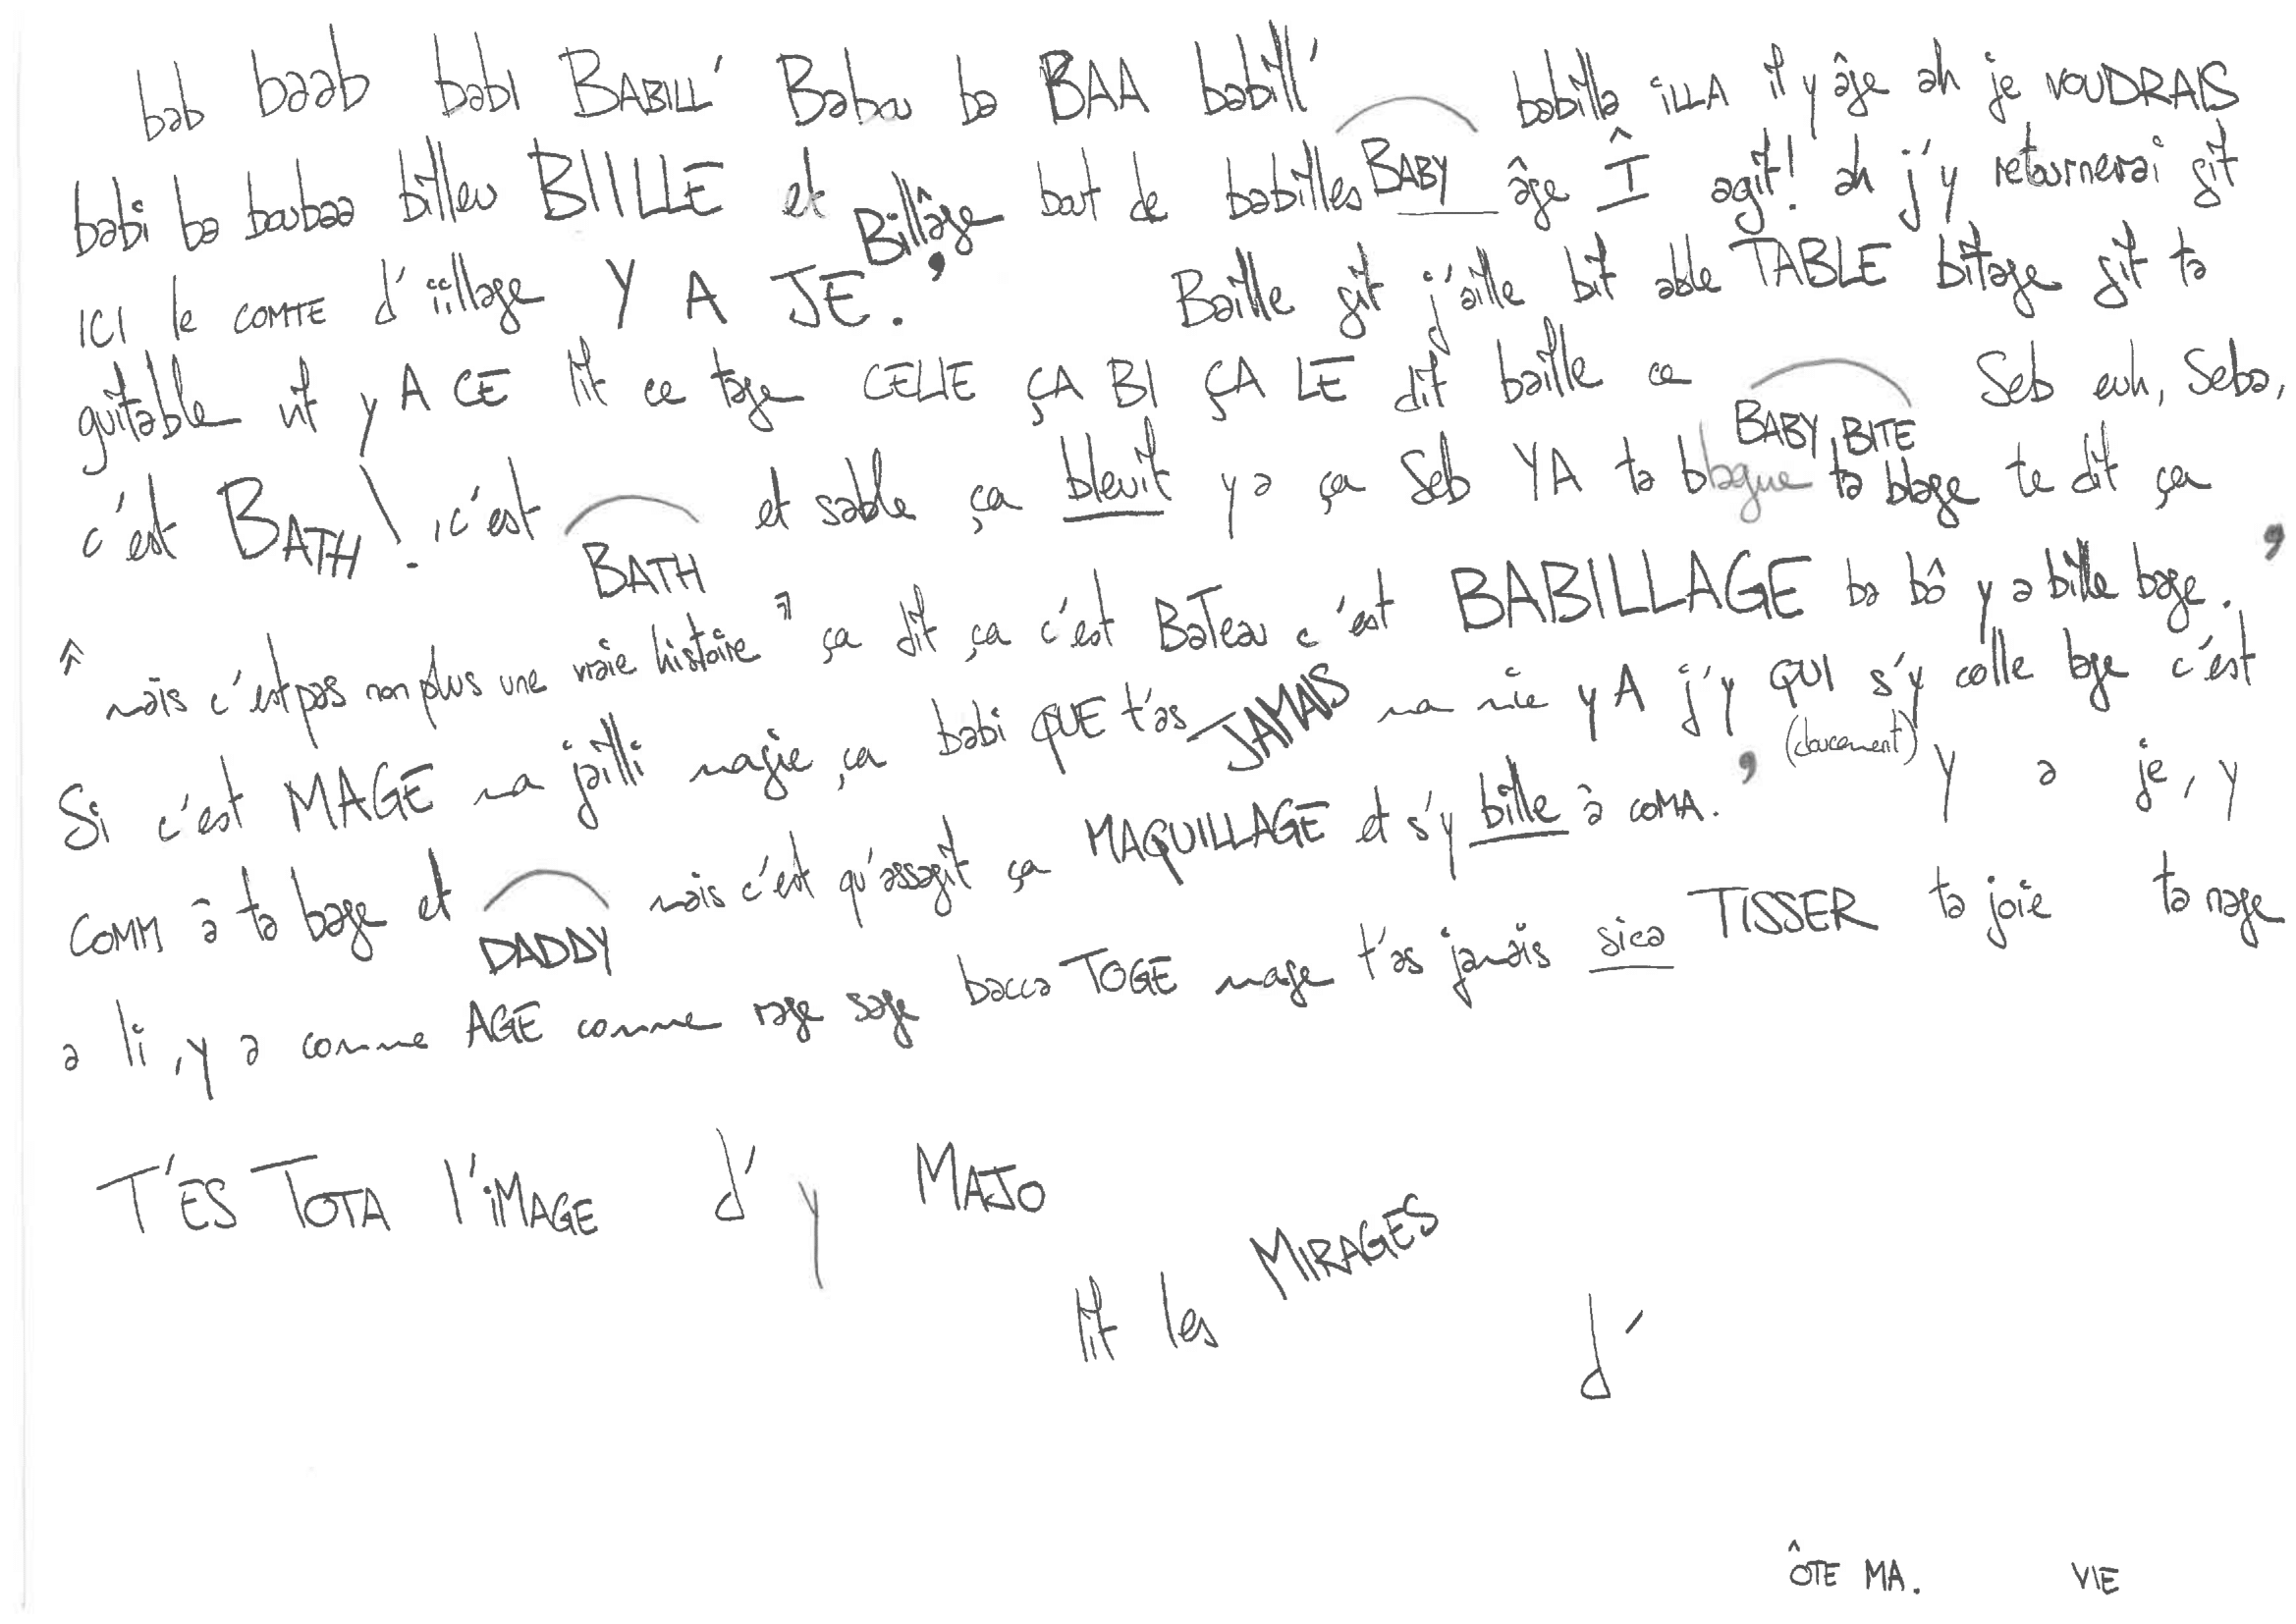 bab baab babi BABILL' Babou ba BAA babill' babilla iLLA il y âge ah je VOUDRAIS
babi ba boubaa billeu BIILLE et Billâge bout de babilles BABY âge Î agit! ah j'y retournerai git
ICI le COMTE d'iillage Y A JE. ' Baille git j'aille bit able TABLE bitage git ta
guitable ut y A CE lit ce tage CELIE ÇA BI ÇA LE dit baille ce BABY BITE Seb euh, Seba,
c'est BATH! c'est BATH et sable ça bleuit y a ça Seb YA ta blague ta blage te dit ça
" mais c'est pas non plus une vraie histoire " ça dit ça c'est BaTeau c'est BABILLAGE ba bô y a bille bage. '
Si c'est MAGE ma jailli magie, ça babi QUE t'as JAMAIS ma mie y A j'y QUI s'y colle bge c'est
COMM à ta bage et DADDY mais c'est qu'assagit ça MAQUILLAGE et s'y bille à COMA. ' (doucement) y a je, y
a li, y a comme AGE comme rage sage bacca TOGE mage t'as jamais sica TISSER ta joie ta rage
T'ES TOTA l'iMAGE d' y MAJO
lit les MIRAGES
d'
ÔTE MA. VIE